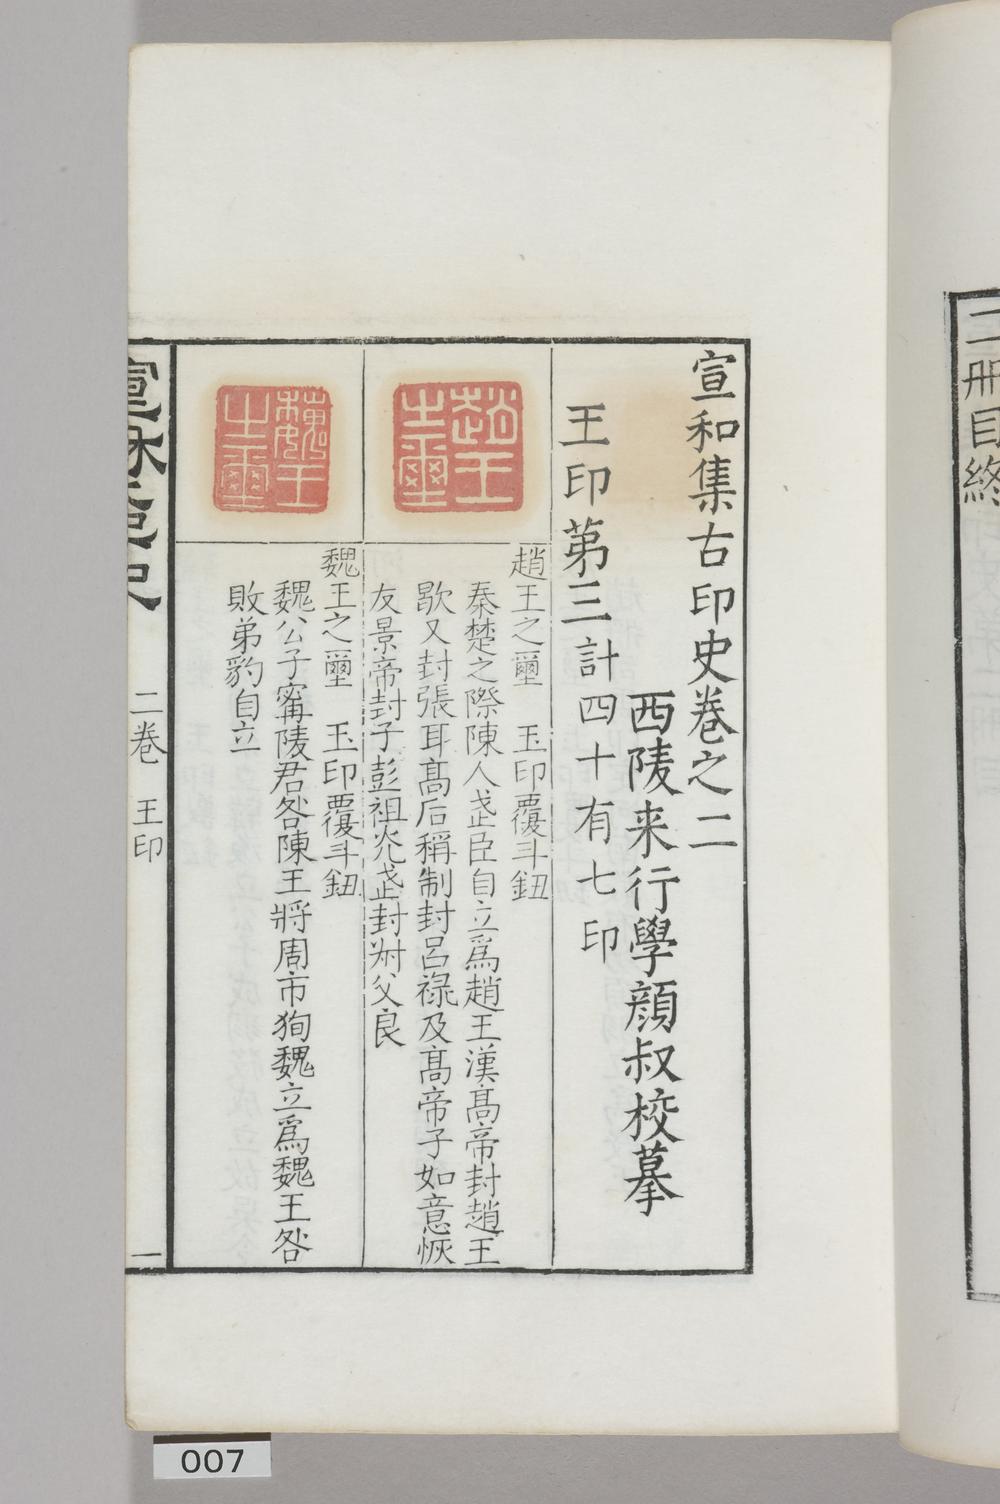 宣和集古印史卷之二
西陵来行學顔叔校摹
王印第三計四十有七印
趙王之璽
趙王之壐　玉印覆斗鈕
秦楚之際陳人武臣自立爲趙王漢髙帝封趙王
歇又封張耳髙后稱制封呂祿及髙帝子如意恢
友景帝封子彭祖光武封叔父良
魏王之璽
魏王之壐　玉印覆斗鈕
魏公子甯陵君咎陳王將周市狥魏立爲魏王咎
敗弟豹自立
宣和印史
二卷　王印
一
二册目終
007